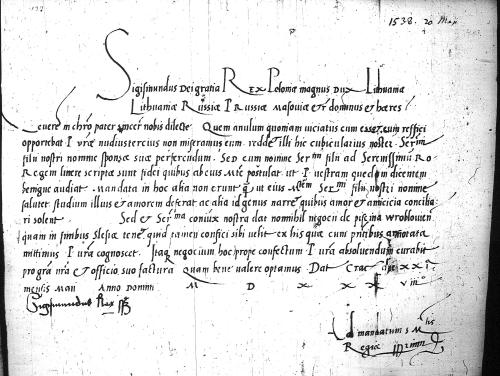 1538. 20 Maij
Sigismundus Dei gratia Rex Polonie magnus Dux Lithuanie
Lithuanie Russie Prussie Masouie etc dominus et heres
Reverende in chro pater syncere nobis dilecte Quem anulum quoniam viciatus cum esset cum reffici
opportebat P vra nudiustercius non miseramus eum reddet illi hic cubicularius noster Ser mi
filii nostri nomine sponse sue perferendum. Sed cum nomine Ser mi filii ad Serenissimum Ro
Regem litere scripte sunt fidei quibus abeius Mte postulatur ut P nostram quedam dicentem
benigne audiat. Mandata in hoc alia non erunt quam ut eius Mtem Ser mi filii nostri nomine
salutet studium illius et amorem deferat ac alia id genus narret quibus amor et amicicia concilia
ri solent Sed et Ser ma coniux nostra dat nonnihil negocii de piscina
quam in finibus Slesie tenet quid tamen confici sibi velit ex his que cum presentibus annotata
mittimus P vra cognoscet. Itaque negocium hoc prope confectum P vra absoluendum curabit
pro gra nra et officio suo factura quam bene valere optamus Dat Crac die xx
mensis Maii Anno Domini M D xxx viii
Sigismundus Rex sst
Ad mandatum S Mtis
Regie